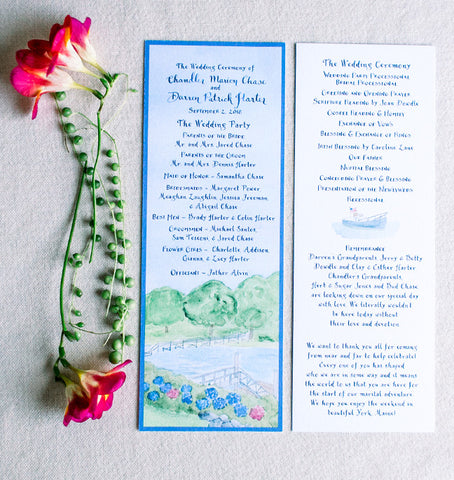 The Wedding Ceremony of
Chandler Marion Chase
and
Darren Patrick Harter
September 2, 2016
The Wedding Party
Parents of the Bride
Mr. and Mrs. James Chase
Parents of the Groom
Mr. and Mrs. Dennis Harter
Maid of Honor - Samantha Chase
Bridesmaids - Margaret Power
Meaghan Laughlin, Jessica Freeman,
& Abigail Chase
Best Men - Brady Harter & Colin Harter
Groomsmen - Michael Santos,
Sam Tessoni, & Jared Chase
Flower Girls - Charlotte Addison,
Gianna & Lucy Harter
Officiant - Father Alvin
The Wedding Ceremony
Wedding Party Processional
Bridal Processional
Greeting and Opening Prayer
Scripture Reading by Joan Dowdle
Gospel Reading & Homily
Exchange of Vows
Blessing & Exchange of Rings
Irish Blessing by Caroline Lane
Our Father
Nuptial Blessing
Concluding Prayer & Blessing
Presentation of the Newlyweds
Recessional
Remembrance
Darren's Grandparents, Jerry & Betty
Dowdle and Clay & Esther Harter
Chandler's Grandparents,
Herb & Sugar Jones and Bud Chase
are looking down on our special day
with love. We literally wouldn't
be here today without
their love and devotion
We want to thank you all for coming
from near and far to help celebrate!
Every one of you has shaped
who we are in some way and it means
the world to us that you are here for
the start of our marital adventure.
We hope you enjoy the weekend in
beautiful York, Maine!